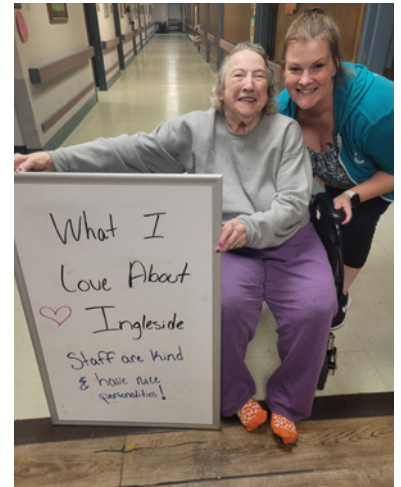 What I
Love About
Ingleside
Staff are kind
& have nice
personalities!